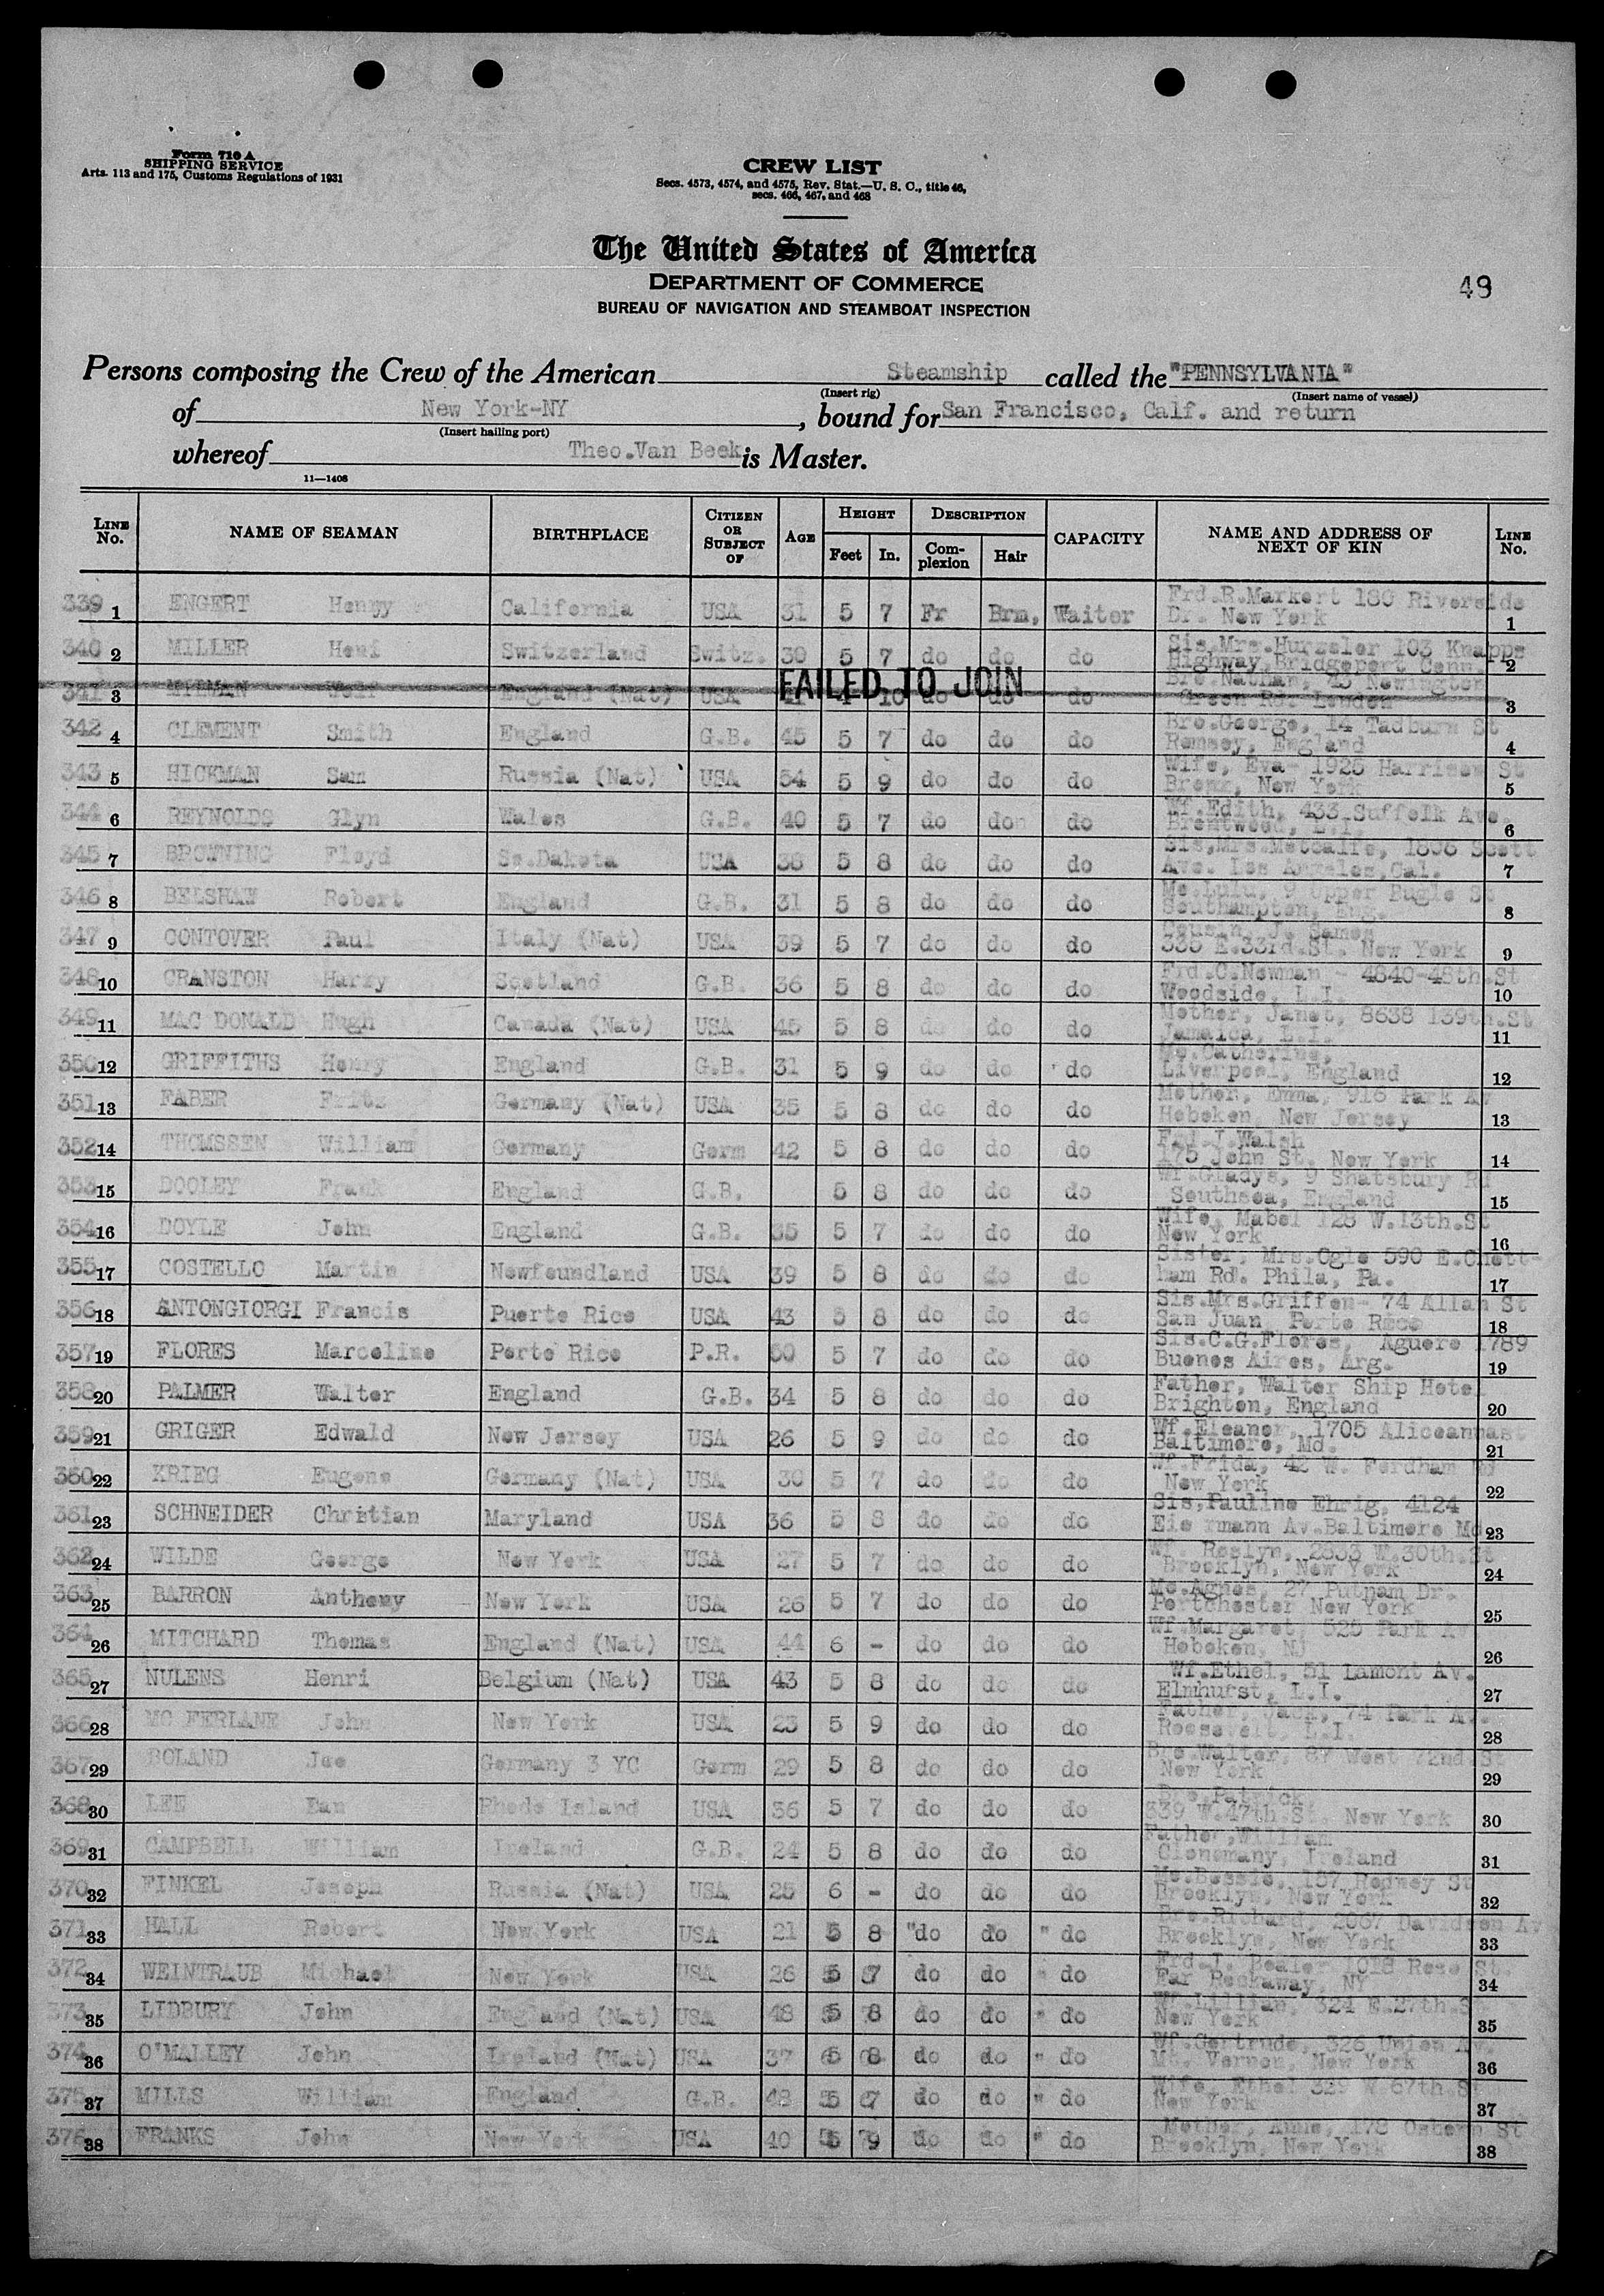 Form 710 A
SHIPPING SERVICE
Arts. 113 and 175, Customs Regulations of 1931
CREW LIST
Secs. 4573, 4574, and 4575, Rev. Stat.—U. S. C., title 46,
secs. 466, 467, and 468
The United States of America
DEPARTMENT OF COMMERCE
BUREAU OF NAVIGATION AND STEAMBOAT INSPECTION
49
Persons composing the Crew of the American Steamship called the "PENNSYLVANIA"
(Insert rig) (Insert name of vessel)
of New York-NY, bound for San Francisco, Calf. and return
(Insert hailing port)
whereof Theo.Van Beek is Master.
11—1408
LINE No. NAME OF SEAMAN BIRTHPLACE CITIZEN OR SUBJECT OF AGE HEIGHT Feet In. DESCRIPTION Complexion Hair CAPACITY NAME AND ADDRESS OF NEXT OF KIN LINE No.
339 1 ENGERT Henry California USA 31 5 7 Fr Brn, Waiter Frd.R.Markert 180 Riverside
Dr. New York 1
340 2 MILLER Switzerland Switz. 30 5 7 do do do Sis.Mrs.Hurzeler 103 Knapps
Highway,Bridgeport Conn. 2
341 3 England (Nat) USA FAILED TO JOIN do do do Bro.Nathan, 43 Newington
Green Rd. London 3
342 4 CLEMENT Smith England G.B. 45 5 7 do do do Bro.George, 14 Tadburn St
Romsey, England 4
343 5 HICKMAN Sam Russia (Nat) USA 54 5 9 do do do Wife, Eva- 1925 Harrison St
Bronx, New York 5
344 6 REYNOLDS Glyn Wales G.B. 40 5 7 do do do Wf.Edith, 433 Suffolk Ave.
Brentwood, L.I. 6
345 7 BROWNING Floyd So.Dakota USA 38 5 8 do do do Sis,Mrs.Metcalfe, Scott
Ave. Los Angeles,Cal. 7
346 8 BELSHAW Robert England G.B. 31 5 8 do do do Mo.Lulu, 9 Upper Bugle St
Southampton, Eng. 8
347 9 CONTOVER Paul Italy (Nat) USA 39 5 7 do do do Cousin, J. Sames
335 E.33rd.St. New York 9
348 10 CRANSTON Harry Scotland G.B. 36 5 8 do do do Frd.C.Newman - 4840-48th.St
Woodside, L.I. 10
349 11 MAC DONALD Hugh Canada (Nat) USA 45 5 8 do do do Mother, Janet, 8638 139th.St
Jamaica, L.I. 11
350 12 GRIFFITHS Henry England G.B. 31 5 9 do do do Mo.Catherine,
Liverpool, England 12
351 13 FABER Fritz Germany (Nat) USA 35 5 8 do do do Mother, Emma, 916 Park Av
Hoboken, New Jersey 13
352 14 THOMSSEN William Germany Germ 42 5 8 do do do Frd.J.Walsh
175 John St. New York 14
353 15 DOOLEY Frank England G.B. 5 8 do do do Wf.Gladys, 9 Shatsbury Rd
Southsea, England 15
354 16 DOYLE John England G.B. 35 5 7 do do do Wife, Mabel 128 W.13th.St
New York 16
355 17 COSTELLO Martin Newfoundland USA 39 5 8 do do do Sister, Mrs.Ogle 590 E.Chett-
ham Rd. Phila, Pa. 17
356 18 ANTONGIORGI Francis Puerto Rico USA 43 5 8 do do do Sis.Mrs.Griffen- 74 Allan St
San Juan, Porto Rico 18
357 19 FLORES Marceline Porto Rico P.R. 5 7 do do do Sis.C.G.Flores, Aguero 1789
Buenos Aires, Arg. 19
358 20 PALMER Walter England G.B. 34 5 8 do do do Father, Walter Ship Hotel
Brighton, England 20
359 21 GRIGER Edwald New Jersey USA 26 5 9 do do do Wf.Eleanor, 1705 Aliceannast
Baltimore, Md. 21
360 22 KRIEG Eugene Germany (Nat) USA 30 5 7 do do do Wf.Frida, 42 W. Fordham Rd
New York 22
361 23 SCHNEIDER Christian Maryland USA 36 5 8 do do do Sis,Pauline Ehrig, 4124
Eie rmann Av.Baltimore Md 23
362 24 WILDE George New York USA 27 5 7 do do do Wf. Roslyn, 2833 W.30th.St
Brooklyn, New York 24
363 25 BARRON Anthony New York USA 26 5 7 do do do Mo.Agnes, 27 Putnam Dr.
Portchester New York 25
364 26 MITCHARD Thomas England (Nat) USA 44 6 - do do do Wf.Margaret, 525 Park Av
Hoboken, NJ 26
365 27 NULENS Henri Belgium (Nat) USA 43 5 8 do do do Wf.Ethel, 51 Lamont Av.
Elmhurst, L.I. 27
366 28 MC FERLANE John New York USA 23 5 9 do do do Father, Jack, 74 Park Av.
Roosevelt, L.I. 28
367 29 BOLAND Joe Germany 3 YC Germ 29 5 8 do do do Bro.Walter, 87 West 72nd.St
New York 29
368 30 LEE Dan Rhode Island USA 36 5 7 do do do Bro.Patrick,
339 W.47th.St. New York 30
369 31 CAMPBELL William Ireland G.B. 24 5 8 do do do Father,William
Clonomany, Ireland 31
370 32 FINKEL Joseph Russia (Nat) USA 25 6 - do do do Mo.Bessie, 187 Rodney St
Brooklyn, New York 32
371 33 HALL Robert New York USA 21 5 8 "do do " do Bro.Richard, 2067 Davidson Av
Brooklyn, New York 33
372 34 WEINTRAUB Michael New York USA 26 5 7 do do " do Frd.I. Bealer 1018 Rose St.
Far Rockaway, NY 34
373 35 LIDBURY John England (Nat) USA 48 5 8 do do " do Wf.Lillian, 324 E.27th.St
New York 35
374 36 O'MALLEY John Ireland (Nat) USA 37 5 8 do do " do Wf.Gertrude, 326 Union Av.
Mt. Vernon, New York 36
375 37 MILLS William England G.B. 48 5 7 do do " do Wife, Ethel 329 W 67th.St
New York 37
376 38 FRANKS John New York USA 40 5 9 do do " do Mother, Anna, 178 Osborn St
Brooklyn, New York 38